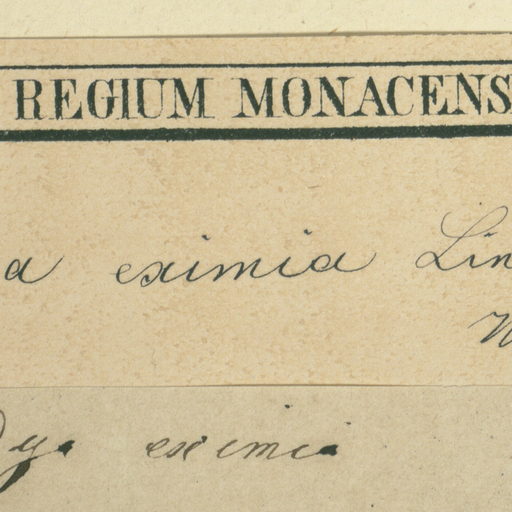 REGIUM MONACENS
a eximia Lin
ya eximia